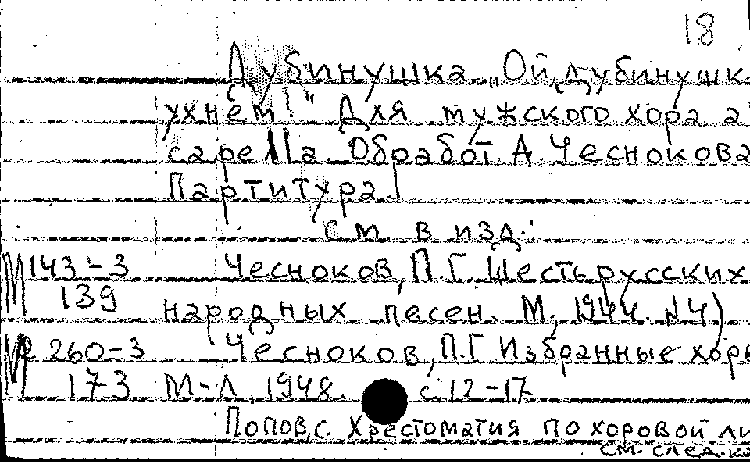 18
Дубинушка „Ой, дубинушк
ухнем!" Для мужского хора a
capella Обработ А. Чеснокова
Партитура.
см. в изд.:
М 143-3 Чесноков, П.Г. Шесть русских
139 народных песен. М., 1944. №4)
260-3 Чесноков, П.Г Избранные хоры
173 М-Л, 1948. с.12-17
Попов, С. Хрестоматия по хоровой ли
см. след. к